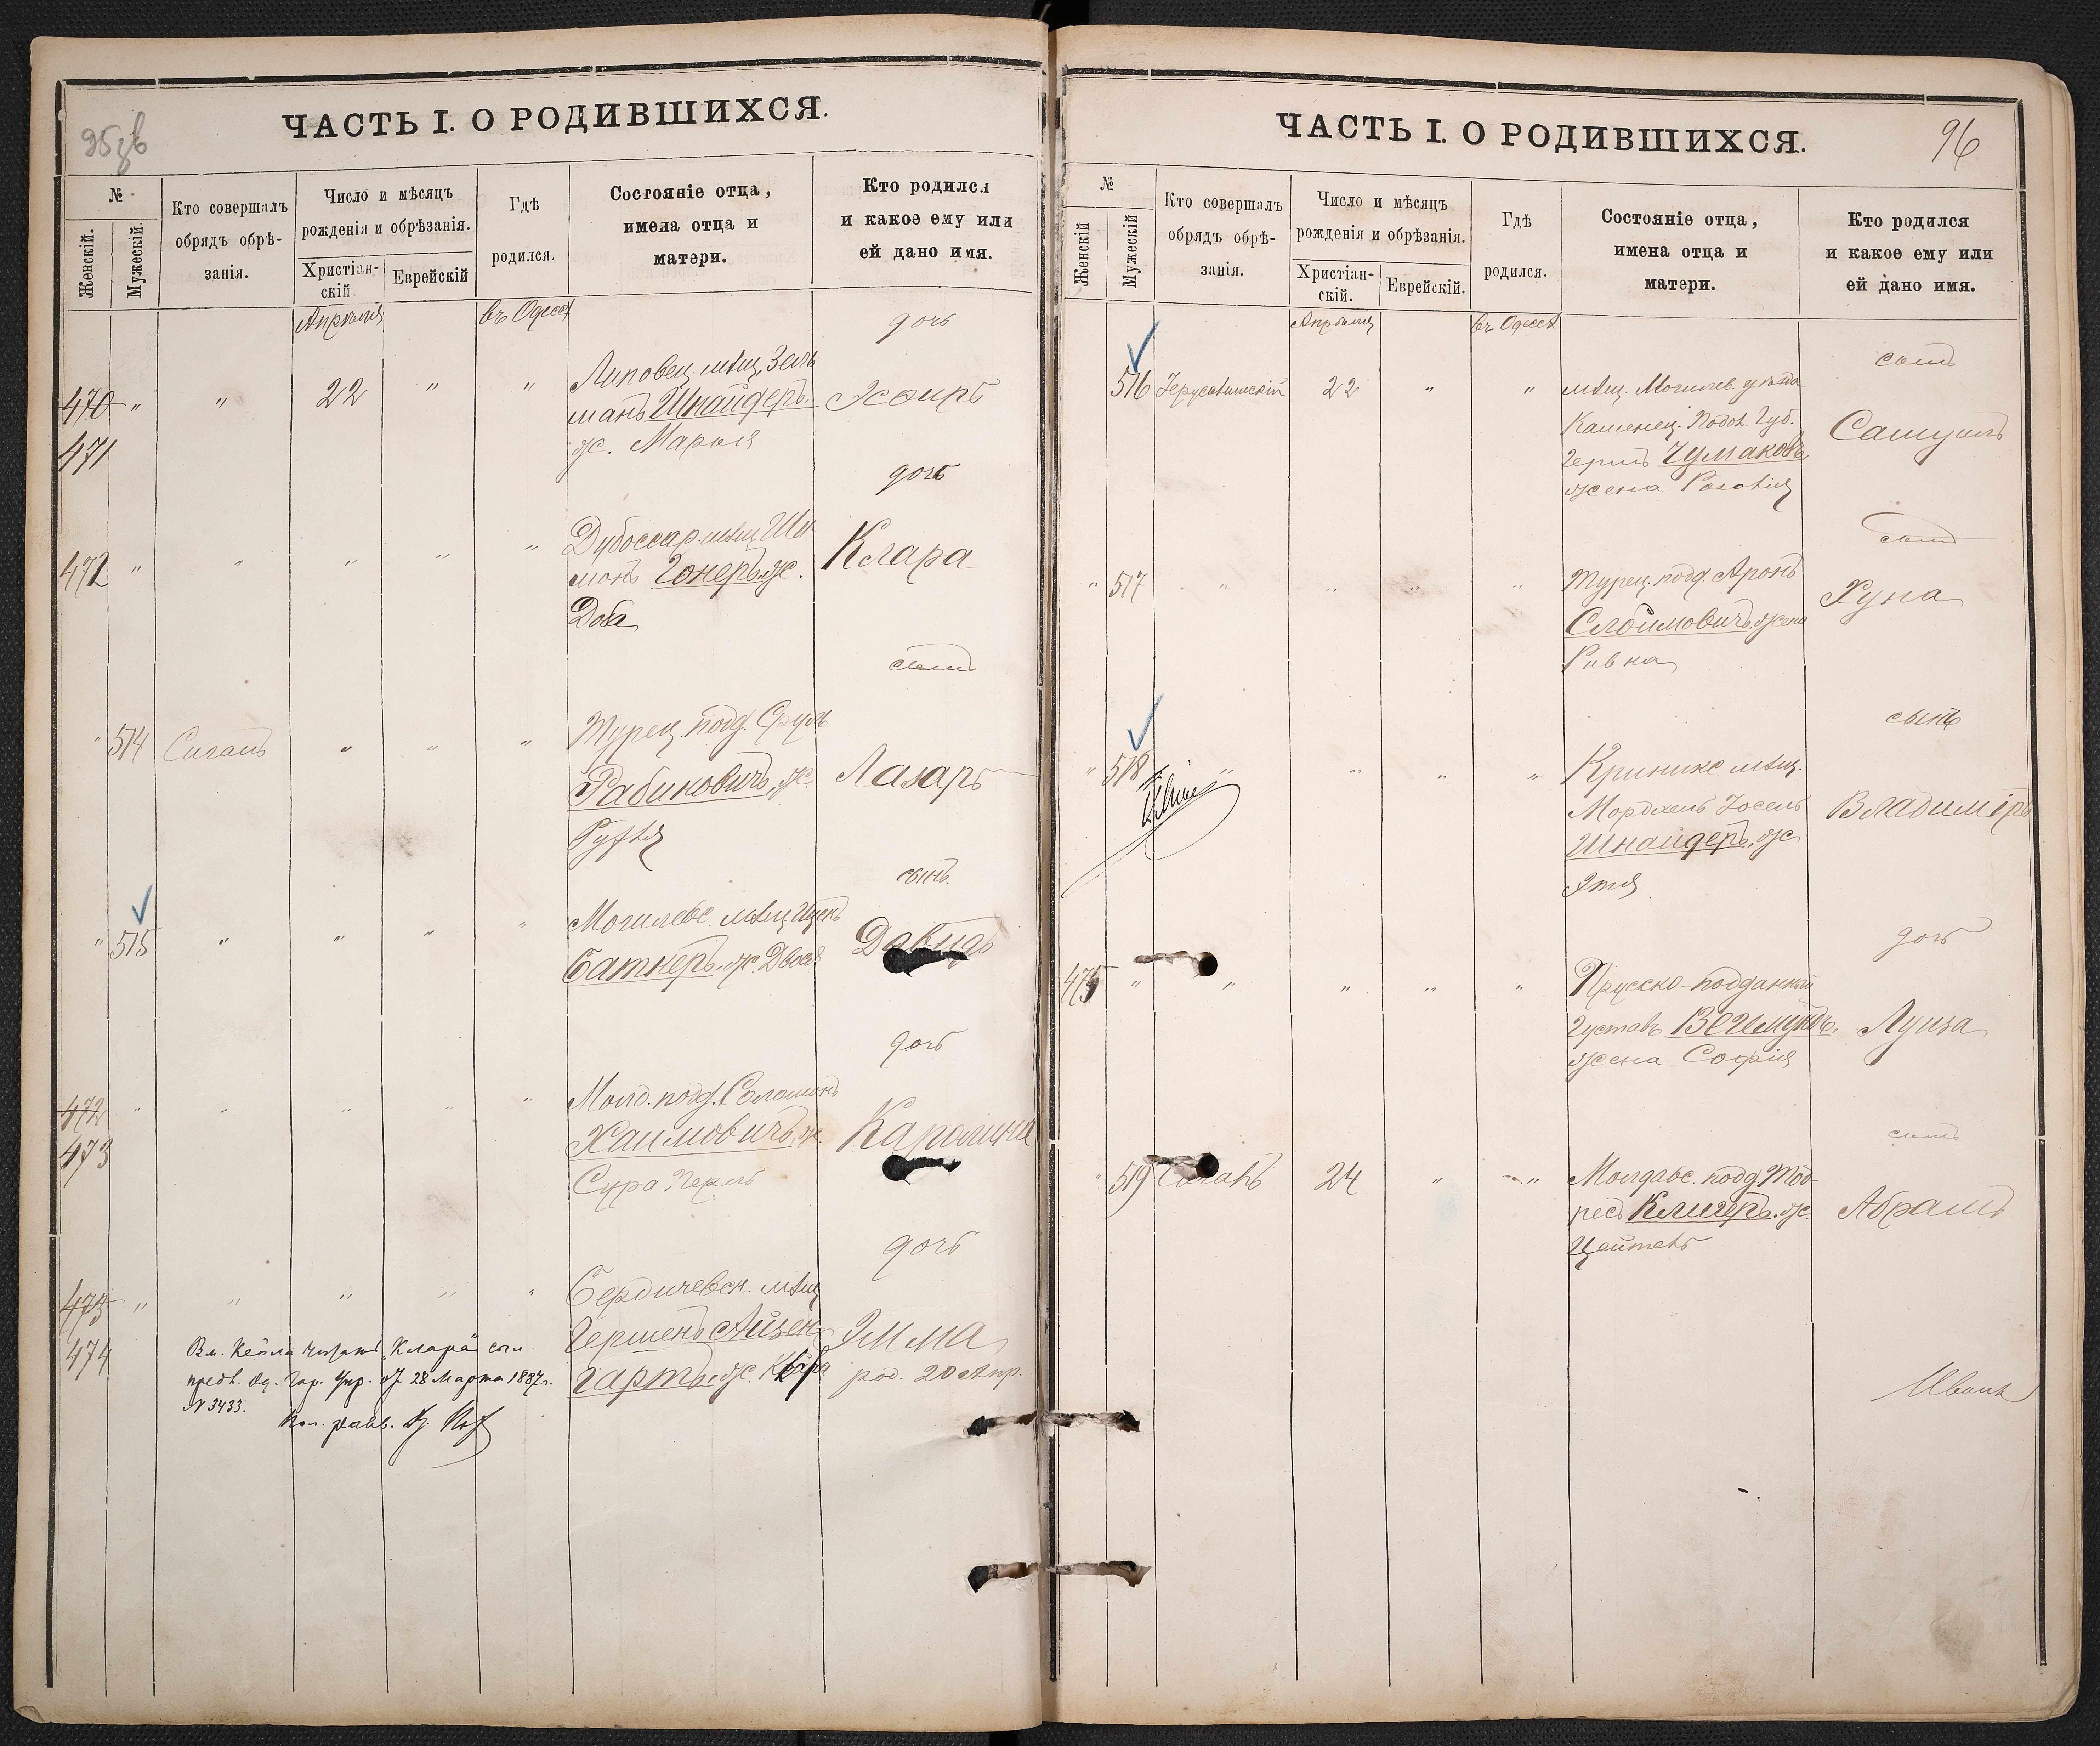 ЧАСТЬ I. О РОДИВШИХСЯ.
№
Женскій.
Мужескій.
Кто совершалъ
обрядъ обрѣ-
занія.
Число и мѣсяцъ
рожденія и обрѣзанія.
Христіан-
скій
Еврейскій
Гдѣ
родился.
Состояніе отца,
имена отца и
матери.
Кто родился
и какое ему или
ей дано имя.
Апрѣля
въ Одессѣ
дочь
470 " " 22 " "
471
Липовец. мѣщ. Заль
манъ Шнайдеръ
ж. Марья
Эсѳирь
дочь
472 " " " " "
Дубоссар. мѣщ. Ши
монъ Гонеръ ж.
Доба
Клара
сынъ
" 514 Сигалъ " " "
Турец. подд. Сруль
Рабиновичъ, ж.
Лазарь
сынъ
" 515 " " " "
Могилевс. мѣщ. Ицекъ
Батнеръ. ж. Двося
Давидъ
дочь
472 " " " " "
473
Молд. подд. Соломонъ
Хаимовичъ, ж.
Сура Перль
Каролина
дочь
473 " " " " "
474
Бердичевск. мѣщ.
Гершенъ Айзен-
гартъ. ж.
Эмма
род. 20 Апр.
Вм. Кейла читать „Клара“ сог.
предл. Од. Гор. Упр. от 28 Марта 1887 г.
№ 3433.
ЧАСТЬ I. О РОДИВШИХСЯ.
96
№
Женскій
Мужескій
Кто совершалъ
обрядъ обрѣ-
занія.
Число и мѣсяцъ
рожденія и обрѣзанія.
Христіан-
скій.
Еврейскій.
Гдѣ
родился.
Состояніе отца,
имена отца и
матери.
Кто родился
и какое ему или
ей дано имя.
Апрѣля
въ Одессѣ
сынъ
516 Іерусалимскій 22 " "
мѣщ. Могилев. уѣзда
Каменец. Подол. Губ.
Герш Чумаковъ
жена Розалія
Самуилъ
сынъ
" 517 " " " "
Турец. подд. Аронъ
Слѣимовичъ. жена
Ривка
Хуна
сынъ
" 518 " " " "
Криникс. мѣщ.
Мордхель Іосель
Шнайдеръ, ж
Этля
Владиміръ
дочь
475 " " " " "
Прусско-подданный
Густавъ
жена Софія
Луиза
сынъ
" 519 Сигалъ 24 " "
Молдавс. подд. Тод-
ресъ Клигеръ. ж.
Цейтель
Абрамъ